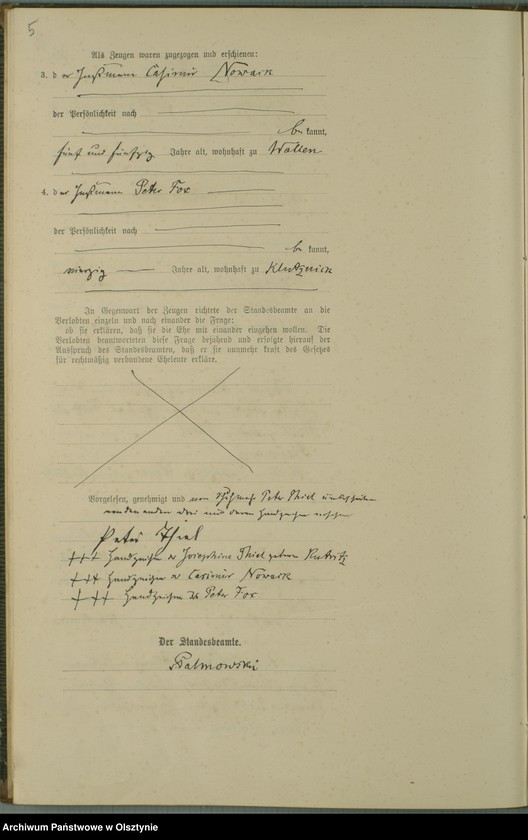 5
Als Zeugen waren zugezogen und erschienen:
3. d er Instmann Casimir Nowack
der Persönlichkeit nach
be kannt,
fünf und fünfzig Jahre alt, wohnhaft zu Wallen
4. d er Instmann Peter Fox
der Persönlichkeit nach
be kannt,
vierzig Jahre alt, wohnhaft zu Klutznick
In Gegenwart der Zeugen richtete der Standesbeamte an die
Verlobten einzeln und nach einander die Frage:
ob sie erklären, daß sie die Ehe mit einander eingehen wollen. Die
Verlobten beantworteten diese Frage bejahend und erfolgte hierauf der
Ausspruch des Standesbeamten, daß er sie nunmehr kraft des Gesetzes
für rechtmäßig verbundene Eheleute erkläre.
Vorgelesen, genehmigt und vom Ehemann Peter Thiel unterschrieben
von den andern drei mit deren Handzeichen versehen
Peter Thiel
+++ Handzeichen der Josephine Thiel geborene
+++ Handzeichen des Casimir Nowack
+++ Handzeichen des Peter Fox
Der Standesbeamte.
Palmowski
Archiwum Państwowe w Olsztynie